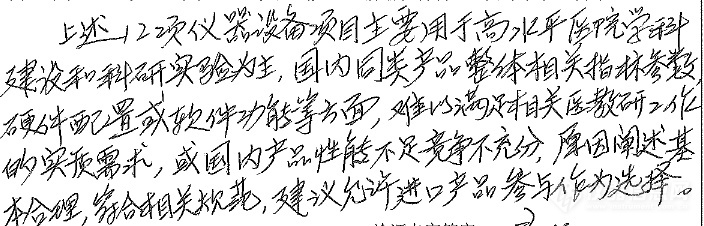 上述122项仪器设备项目主要用于高水平医院学科
建设和科研实验为主，国内同类产品整体相关指标参数，
硬件配置或软件功能等方面，难以满足相关医教研工作
的实质需求，或国内产品性能不足竞争不充分，原因阐述基
本合理，符合相关规范，建议允许进口产品参与作为选择。